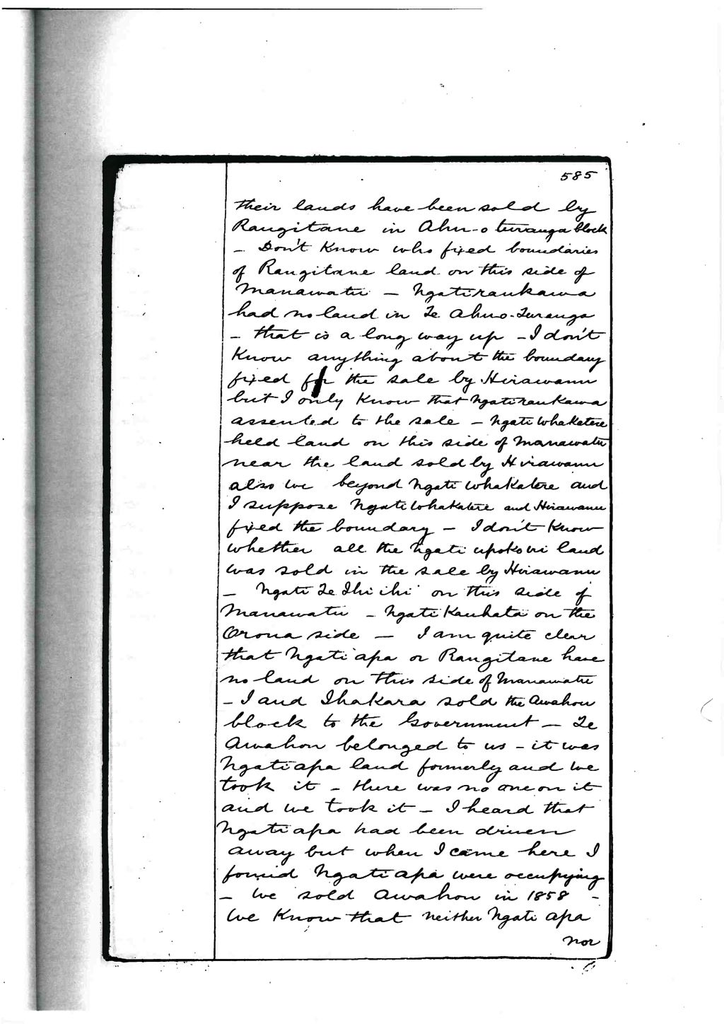 585
their lands have been sold by
Rangitane in Ahu-o turanga block
- Don't Know who fixed boundaries
of Rangitane land on this side of
Manawatu - Ngatiraukawa
had no land in Te Ahuo-Turanga
- that is a long way up - I don't
Know anything about the boundary
fixed for the sale by Hirawanu
but I only Know that Ngatiraukawa
assented to the sale - Ngati Whakatere
held land on this side of Manawatu
near the land sold by Hirawanu
also we beyond Ngati Whakatere and
I suppose Ngati Whakatere and Hirawanu
fixed the boundary - I don't Know
whether all the Ngati upokoiri land
was sold in the sale by Hirawanu
- Ngati Te Ihi ihi on this side of
Manawatu - Ngati Kauhata on the
Oroua side - I am quite clear
that Ngati apa or Rangitane have
no land on this side of Manawatu
- I and Ihakara sold the Awahou
block to the Government - Te
Awahou belonged to us - it was
Ngati apa land formerly and we
took it - there was no one on it
and we took it - I heard that
Ngati apa had been driven
away but when I came here I
found Ngati apa were occupying
- We sold Awahou in 1858 -
We Know that neither Ngati Apa
nor